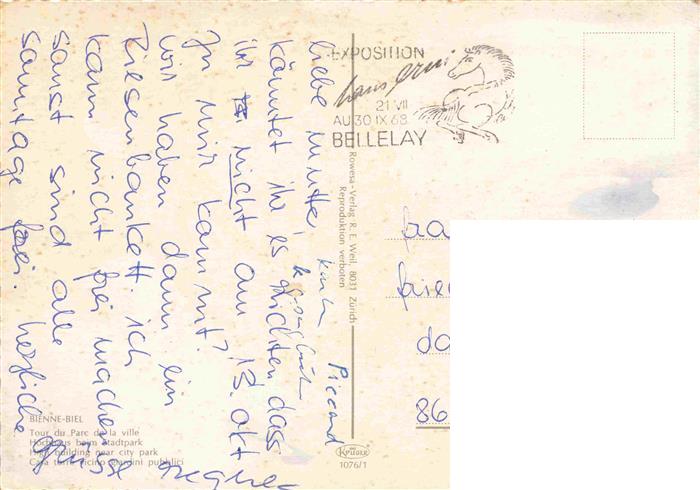 liebe mutter
könntet ihr es richten dass
ihr nicht am 13. okt
zu mir kommt?
wir haben dann ein
Riesenbankett. ich
kann nicht frei machen
sonst sind alle
sonntage frei. herzliche
grüsse
Piccard
EXPOSITION
hans erni
21 VII
AU 30 IX 68
BELLELAY
Rowesa-Verlag R. E. Weil, 8031 Zürich
Reproduktion verboten
fra
frie
do
86
BIENNE-BIEL
Tour du Parc de la ville
Hochhaus beim Stadtpark
High building near city park
Casa torre vicino giardini pubblici
KRÜGER
1076/1